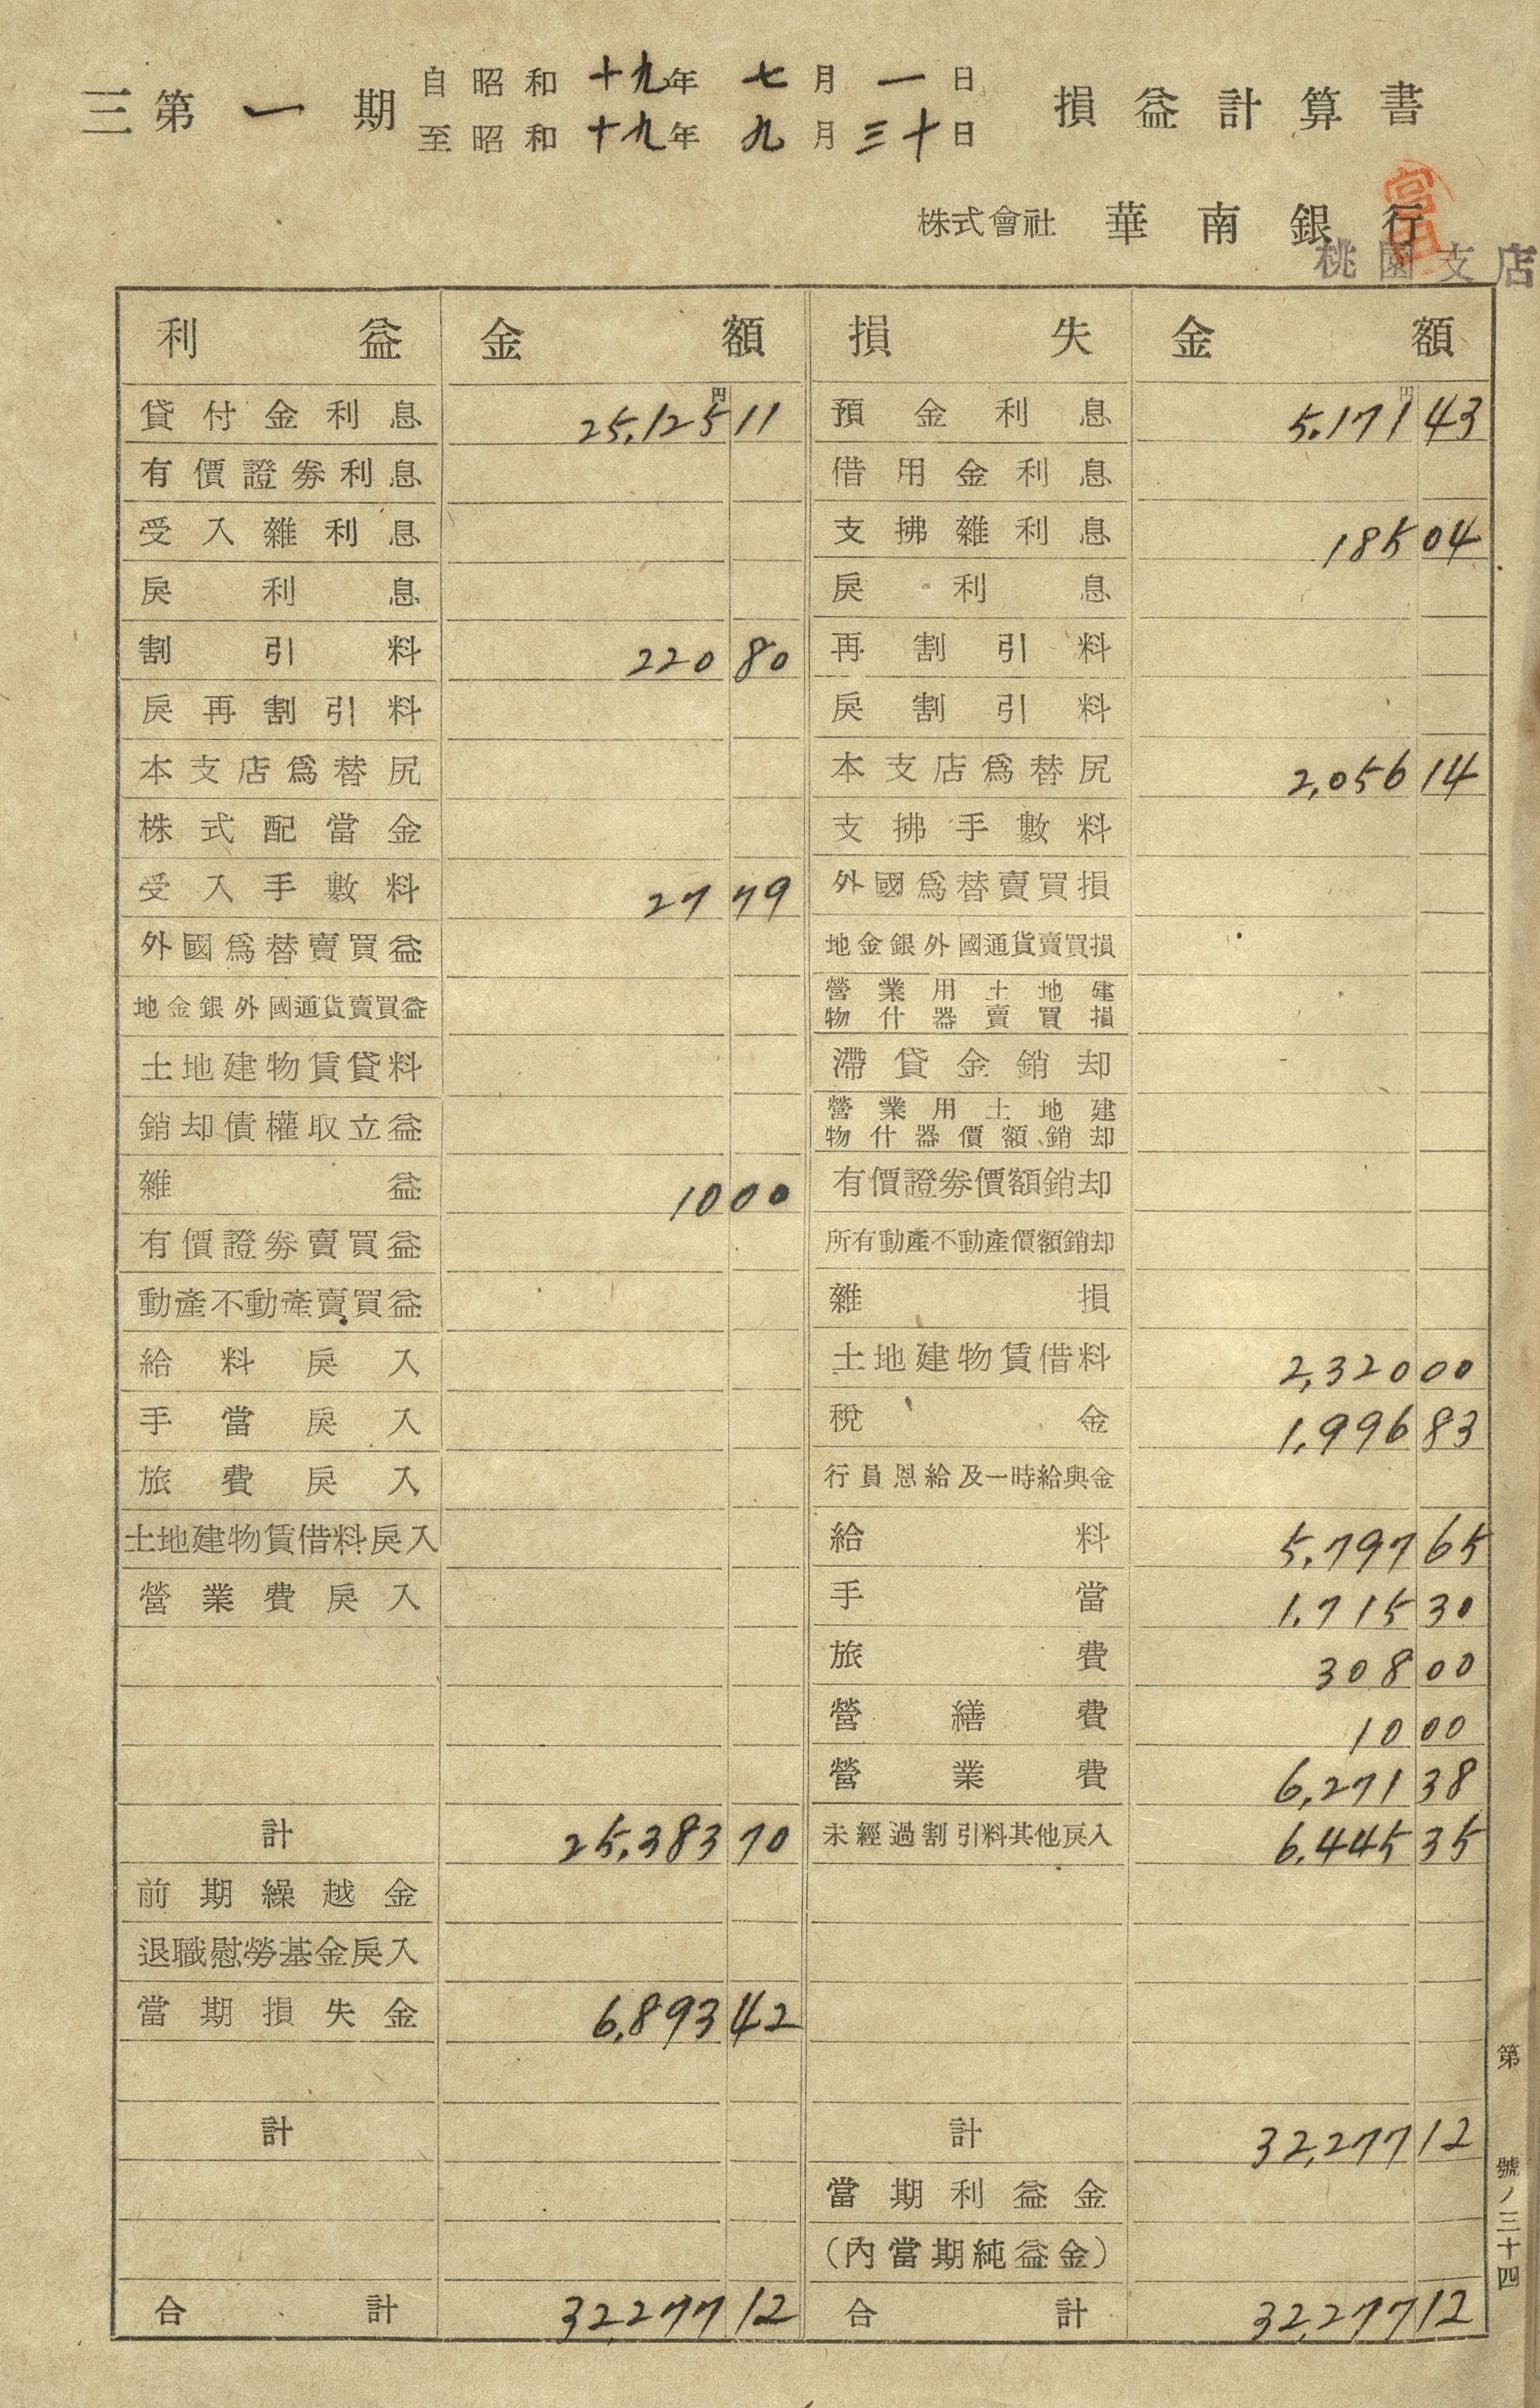 三第一期 自昭和十九年七月一日 損益計算書
至昭和十九年九月三十日
株式會社 華南銀行
桃園支店
利益 金額 損失 金額
貸付金利息 25,125円11 預金利息 5,171円43
有價證券利息 借用金利息
受入雜利息 支拂雜利息 185 04
戾利息 戾利息
割引料 220 80 再割引料
戾再割引料 戾割引料
本支店爲替尻 本支店爲替尻 2,056 14
株式配當金 支拂手數料
受入手數料 27 79 外國爲替賣買損
外國爲替賣買益 地金銀外國通貨賣買損
地金銀外國通貨賣買益 營業用土地建物什器賣買損
土地建物賃貸料 滯貸金銷却
銷却債權取立益 營業用土地建物什器價額銷却
雜益 10 00 有價證券價額銷却
有價證券賣買益 所有動產不動產價額銷却
動產不動產賣買益 雜損
給料戾入 土地建物賃借料 2,320 00
手當戾入 稅金 1,996 83
旅費戾入 行員恩給及一時給與金
土地建物賃借料戾入 給料 5,797 65
營業費戾入 手當 1,715 30
旅費 308 00
營繕費 10 00
營業費 6,271 38
計 25,383 70 未經過割引料其他戾入 6,445 35
前期繰越金
退職慰勞基金戾入
當期損失金 6,893 42
計 計 32,277 12
當期利益金
(內當期純益金)
合計 32,277 12 合計 32,277 12
第 號ノ三十四